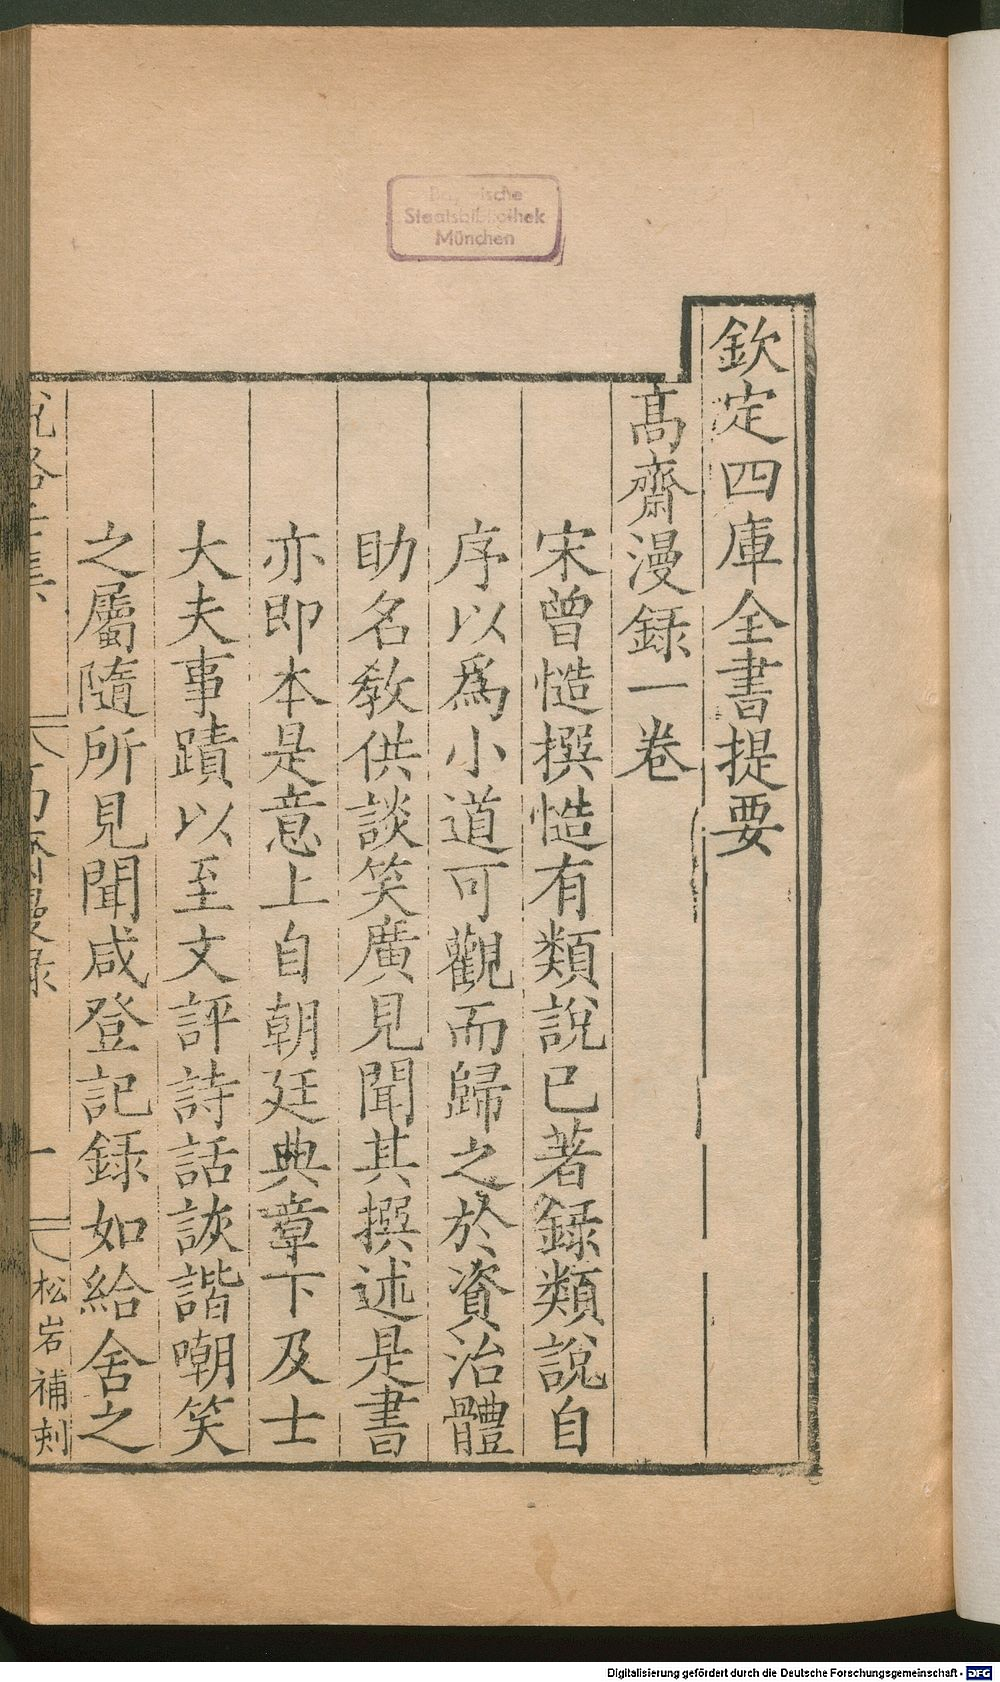 Bayerische
Staatsbibliothek
München
欽定四庫全書提要
髙齋漫録一卷
宋曾慥撰慥有類説已著録類説自
序以爲小道可觀而歸之於資治體
助名教供談笑廣見聞其撰述是書
亦即本是意上自朝廷典章下及士
大夫事蹟以至文評詩話詼諧嘲笑
之屬隨所見聞咸登記録如給舍之
一
松岩補刋
Digitalisierung gefördert durch die Deutsche Forschungsgemeinschaft - DFG